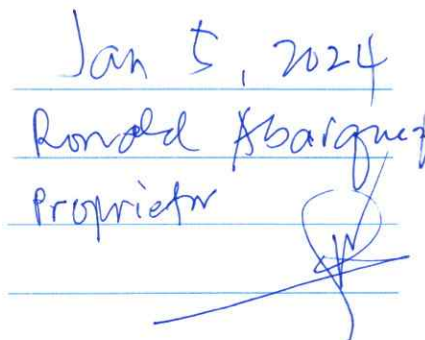 Jan 5, 2024
Ronald Abarquez
Proprietor